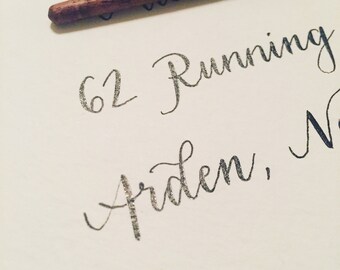 62 Running
Arden, N